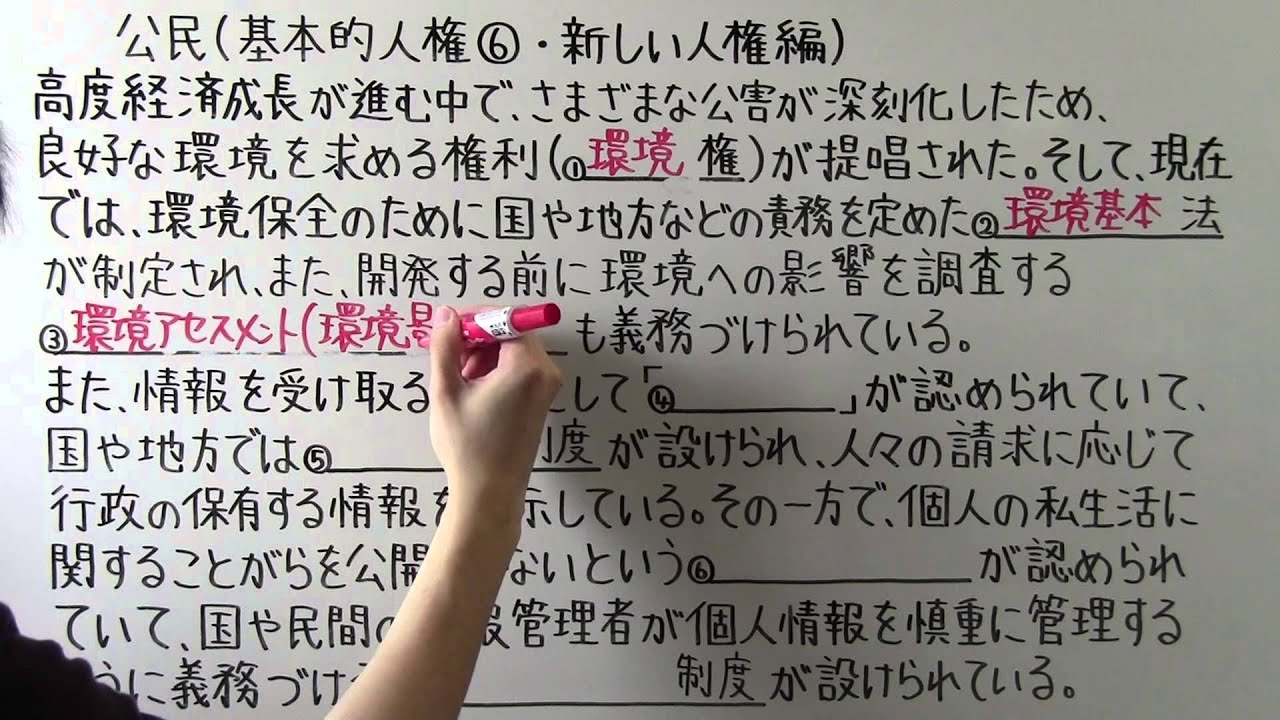 公民(基本的人権⑥・新しい人権編)
高度経済成長が進む中で、さまざまな公害が深刻化したため、
良好な環境を求める権利(①環境 権)が提唱された。そして、現在
では、環境保全のために国や地方などの責務を定めた②環境基本 法
が制定され、また、開発する前に環境への影響を調査する
③環境アセスメント(環境 も義務づけられている。
また、情報を受け取る として「④ 」が認められていて、
国や地方では⑤ 度 が設けられ、人々の請求に応じて
行政の保有する情報を 示している。その一方で、個人の私生活に
関することがらを公開 ないという⑥ が認められ
ていて、国や民間の 管理者が個人情報を慎重に管理する
うに義務づけ 制度 が設けられている。